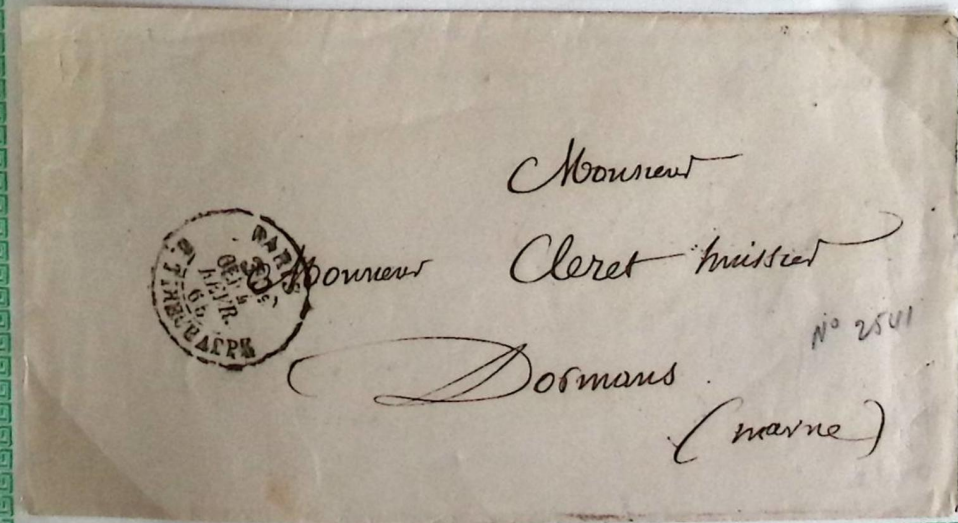 Monsieur
Monsieur Cleret huissier
Dormans
(marne)
N° 2541
PARIS
FEVR.
65